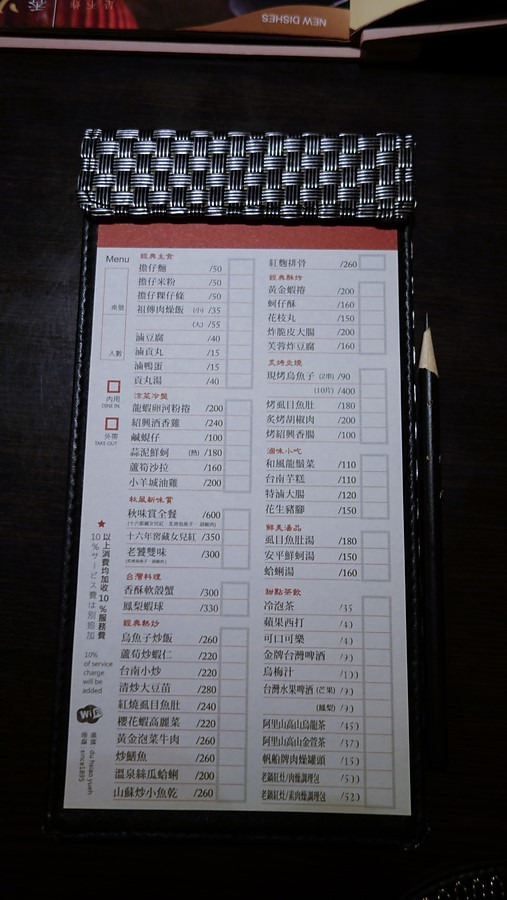 NEW DISHES
Menu
桌號
人數
內用
DINE IN
外帶
TAKE OUT
★以上消費均加收10%服務費
10%サービス費は別途加
10%
of service
charge
will be
added
Wi
du hsiao yueh
since1895
經典主食
擔仔麵 /50
擔仔米粉 /50
擔仔粿仔條 /50
祖傳肉燥飯 (小) /35
(大) /55
滷豆腐 /40
滷貢丸 /15
滷鴨蛋 /15
貢丸湯 /40
涼菜冷盤
龍蝦卵河粉捲 /200
紹興酒香雞 /240
鹹蜆仔 /100
蒜泥鮮蚵 (熱) /180
蘆筍沙拉 /160
小羊城油雞 /200
秋風新味賞
秋味賞全餐 /600
十六年窖藏女兒紅 /350
老饕雙味 /300
台灣料理
香酥軟殼蟹 /300
鳳梨蝦球 /330
經典熱炒
烏魚子炒飯 /260
蘆筍炒蝦仁 /220
台南小炒 /220
清炒大豆苗 /280
紅燒虱目魚肚 /240
櫻花蝦高麗菜 /220
黃金泡菜牛肉 /260
炒鱔魚 /260
溫泉絲瓜蛤蜊 /200
山蘇炒小魚乾 /260
紅麴排骨 /260
經典酥炸
黃金蝦捲 /200
蚵仔酥 /160
花枝丸 /150
炸脆皮大腸 /200
芙蓉炸豆腐 /160
炙烤炎燒
現烤烏魚子 (2串) /90
(10片) /400
烤虱目魚肚 /180
炙烤胡椒肉 /200
烤紹興香腸 /100
滷味小吃
和風龍鬚菜 /110
台南芋粿 /110
特滷大腸 /120
花生豬腳 /150
鮮美湯品
虱目魚肚湯 /180
安平鮮蚵湯 /150
蛤蜊湯 /160
甜點茶飲
冷泡茶 /35
蘋果西打 /40
可口可樂 /40
金牌台灣啤酒 /90
烏梅汁 /100
台灣水果啤酒 (芒果) /90
(鳳梨) /90
阿里山高山烏龍茶 /450
阿里山高山金萱茶 /370
帆船牌肉燥罐頭 /150
老鍋紅灶/肉燥調理包 /500
老鍋紅灶/素肉燥調理包 /520